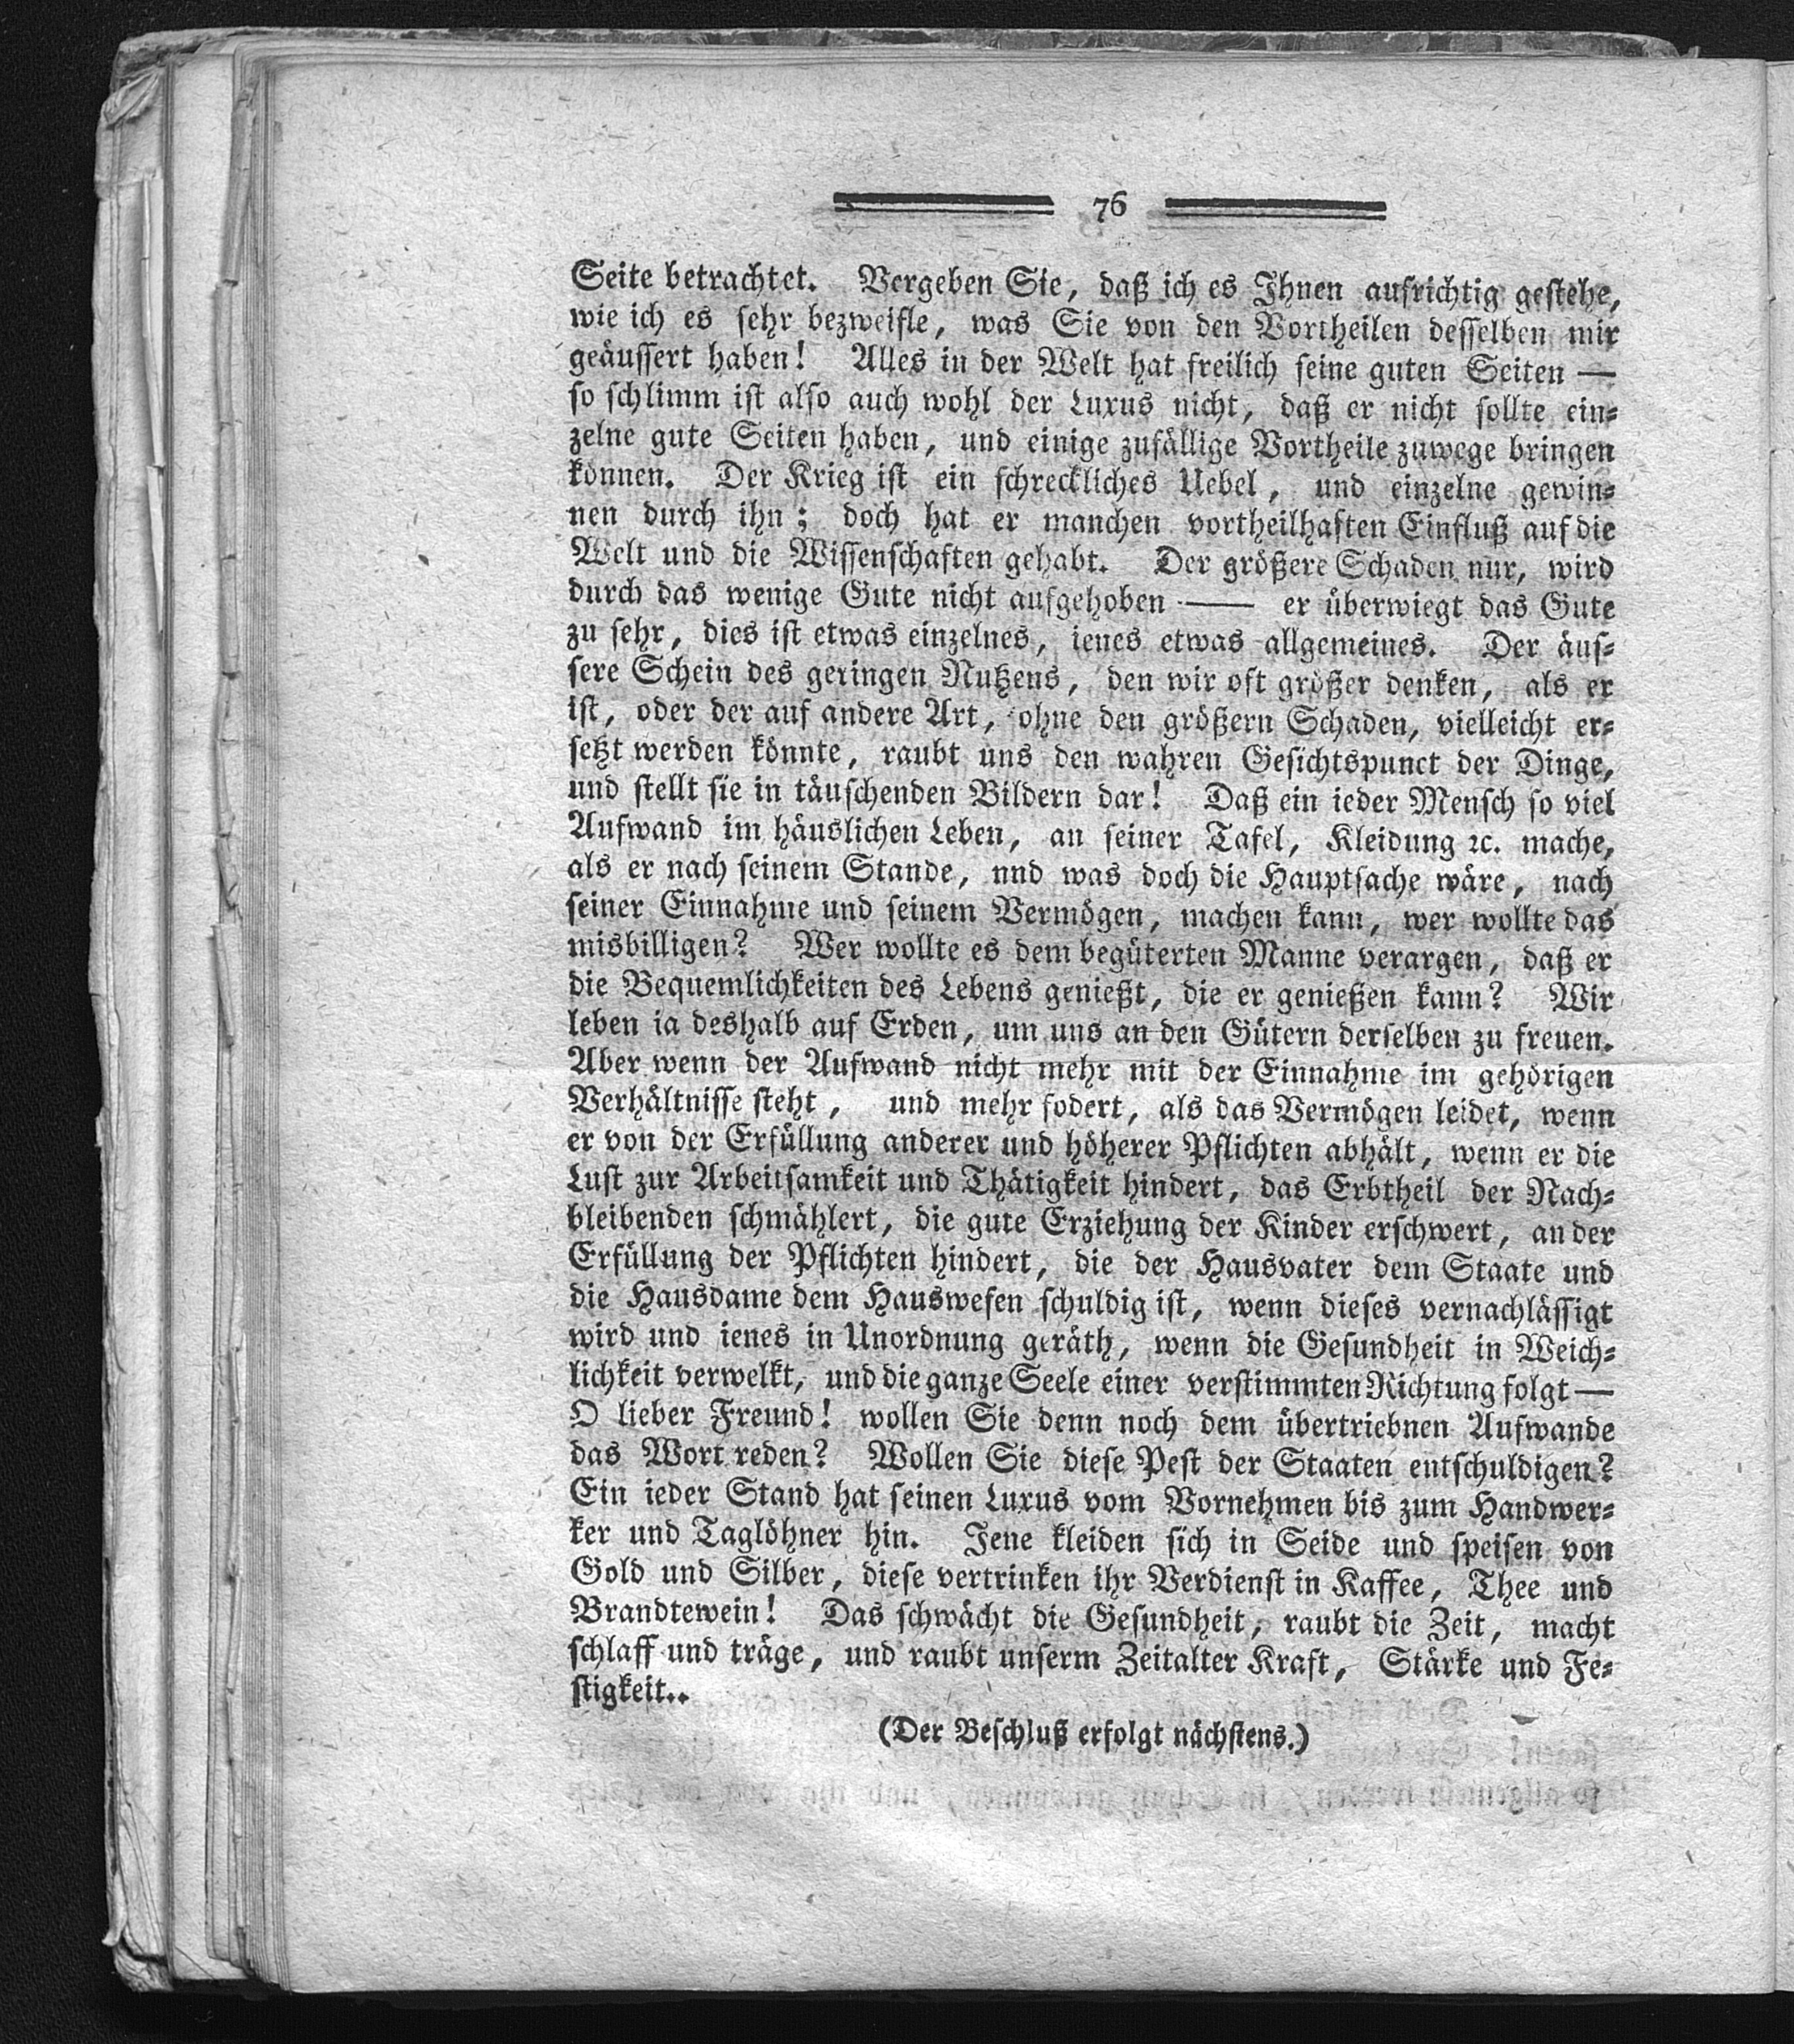 76
Seite betrachtet. Vergeben Sie, daß ich es Ihnen aufrichtig gestehe,
wie ich es sehr bezweifle, was Sie von den Vortheilen desselben mir
geäussert haben! Alles in der Welt hat freilich seine guten Seiten —
so schlimm ist also auch wohl der Luxus nicht, daß er nicht sollte ein-
zelne gute Seiten haben, und einige zufällige Vortheile zuwege bringen
können. Der Krieg ist ein schreckliches Uebel, und einzelne gewin-
nen durch ihn; doch hat er manchen vortheilhaften Einfluß auf die
Welt und die Wissenschaften gehabt. Der größere Schaden nur, wird
durch das wenige Gute nicht aufgehoben —— er überwiegt das Gute
zu sehr, dies ist etwas einzelnes, ienes etwas allgemeines. Der äus-
sere Schein des geringen Nutzens, den wir oft größer denken, als er
ist, oder der auf andere Art, ohne den größern Schaden, vielleicht er-
setzt werden könnte, raubt uns den wahren Gesichtspunct der Dinge,
und stellt sie in täuschenden Bildern dar! Daß ein ieder Mensch so viel
Aufwand im häuslichen Leben, an seiner Tafel, Kleidung ꝛc. mache,
als er nach seinem Stande, nnd was doch die Hauptsache wäre, nach
seiner Einnahme und seinem Vermögen, machen kann, wer wollte das
misbilligen? Wer wollte es dem begüterten Manne verargen, daß er
die Bequemlichkeiten des Lebens genießt, die er genießen kann? Wir
leben ia deshalb auf Erden, um uns an den Gütern derselben zu freuen.
Aber wenn der Aufwand nicht mehr mit der Einnahme im gehörigen
Verhältnisse steht, und mehr fodert, als das Vermögen leidet, wenn
er von der Erfüllung anderer und höherer Pflichten abhält, wenn er die
Lust zur Arbeitsamkeit und Thätigkeit hindert, das Erbtheil der Nach-
bleibenden schmählert, die gute Erziehung der Kinder erschwert, an der
Erfüllung der Pflichten hindert, die der Hausvater dem Staate und
die Hausdame dem Hauswesen schuldig ist, wenn dieses vernachlässigt
wird und ienes in Unordnung geräth, wenn die Gesundheit in Weich-
lichkeit verwelkt, und die ganze Seele einer verstimmten Richtung folgt —
O lieber Freund! wollen Sie denn noch dem übertriebnen Aufwande
das Wort reden? Wollen Sie diese Pest der Staaten entschuldigen?
Ein ieder Stand hat seinen Luxus vom Vornehmen bis zum Handwer-
ker und Taglöhner hin. Jene kleiden sich in Seide und speisen von
Gold und Silber, diese vertrinken ihr Verdienst in Kaffee, Thee und
Brandtewein! Das schwächt die Gesundheit, raubt die Zeit, macht
schlaff und träge, und raubt unserm Zeitalter Kraft, Stärke und Fe-
stigkeit..
(Der Beschluß erfolgt nächstens.)